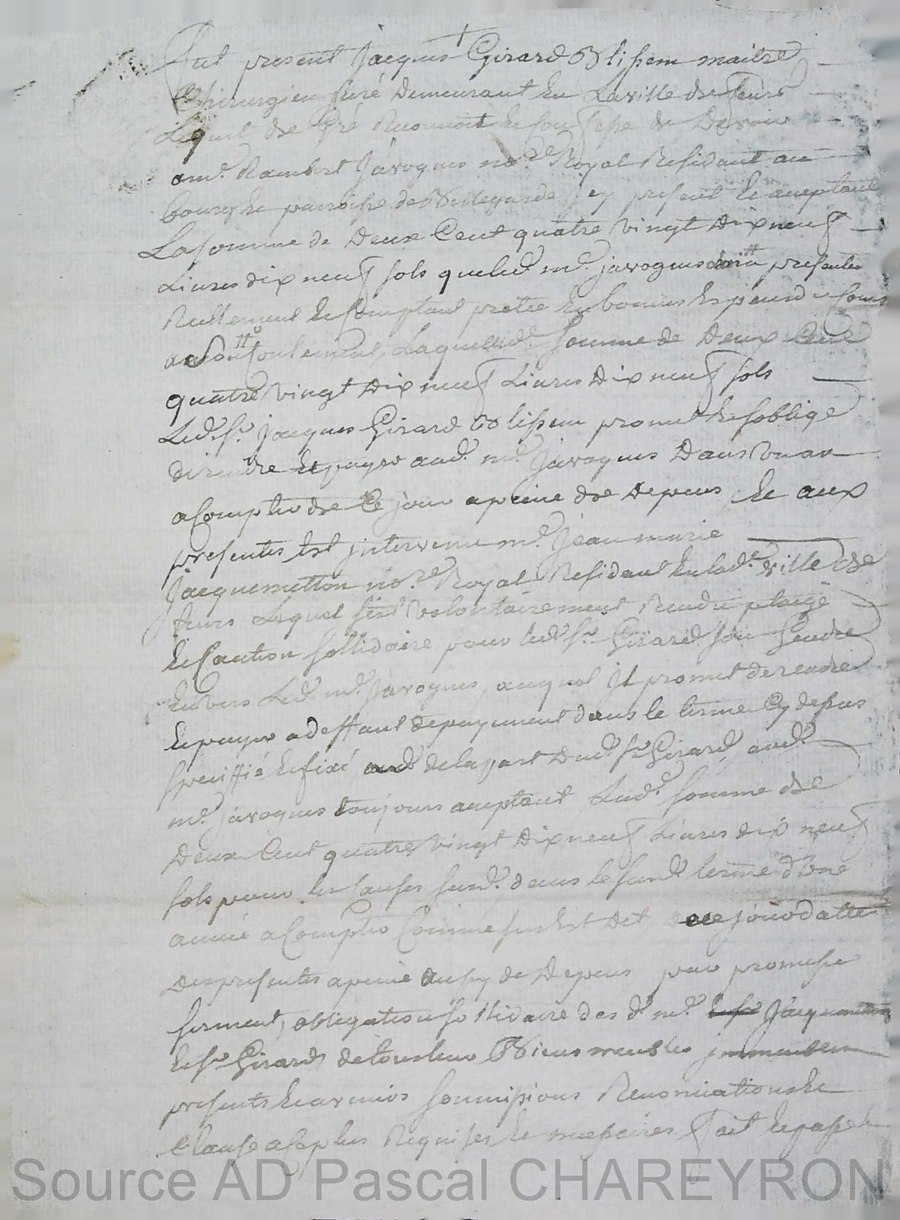 Fut present Jacques Girard Oblissem maitre
Chirurgien juré demeurant en la ville de feurs
Lequel de gré Reconnoit et confesse de devoir
a me. Rambert Javogues nore. Royal Residant au
bourg et parroisse de Bellegarde, jcy present et aceptant
La somme de deux Cent quatre vingt dix neuf
Livres dix neuf sols que led. me. javogues presentée
Reellement et Comptant en bonnes Especes de Cours
laquelle somme de deux Cent
quatre vingt dix neuf Livres dix neuf sols
Led. sr. jacques Girard Oblissem promet et soblige
de rendre et payer aud. me. javogues dans un an
a Compter de Ce jour a peine de depens, Et aux
presentes Est jntervenu me. jean marie
jacquemetton nore. Royal Residant en lad. ville de
feurs Lequel sest volontairement Rendu pleige
et Caution sollidaire pour led. sr. Girard son Gendre
Envers Led. me. Javogues, auquel jl promet de rendre
et payer a deffaut de payement dans le terme Cy dessus
speciffié et fixé de la part dud. sr. Girard, aud.
me. javogues toujours aceptant Lad. somme de
Deux Cent quatre vingt dix neuf Livres dix neuf
sols pour les Causes susd. dans le susd. terme d'une
année a Compter Comme sus Est dit, de ce jour datte
des presentes a peine aussy de depens, par promesse
serment, obligation sollidaire desd. me. Jacquemetton
et sr. Girard, de tous leurs Biens meubles jmmeubles
presents et avenirs soumissions Renonciations et
Clauses a ce plus Requises et necessaires fait et passé
Source AD Pascal CHAREYRON